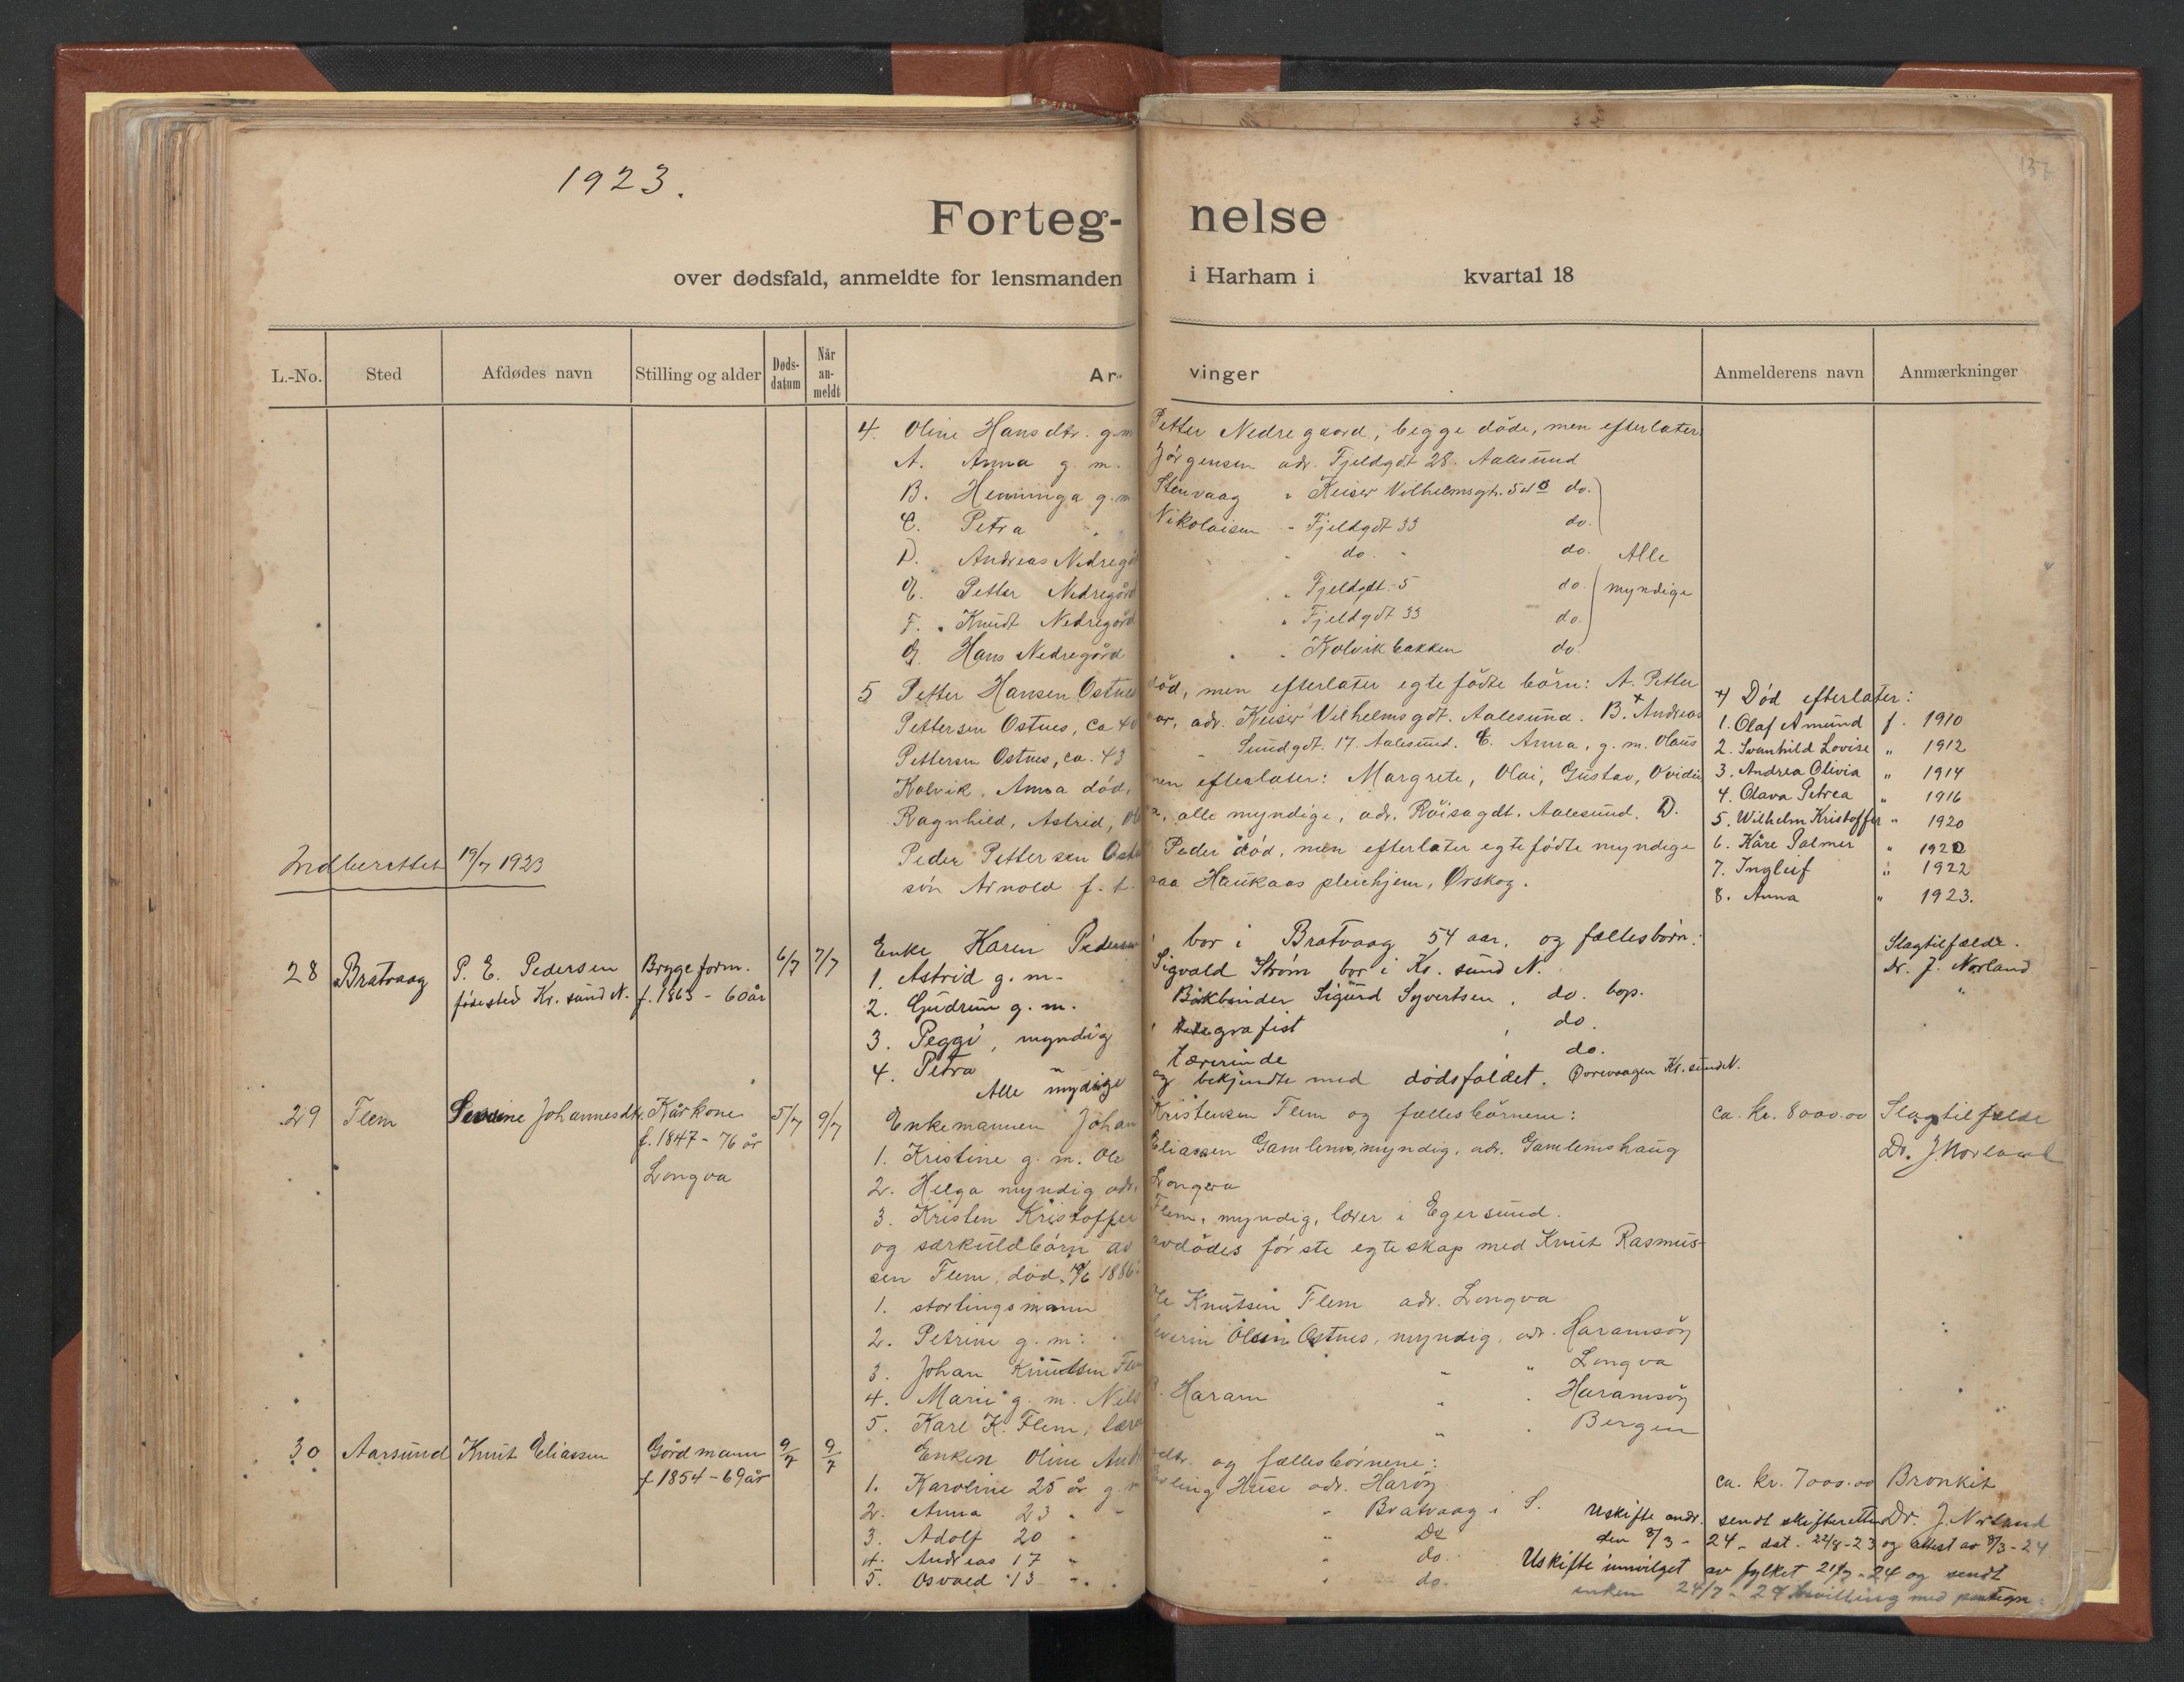 1923.
137
Forteg- nelse
over dødsfald, anmeldte for lensmanden i Harham i kvartal 18
L.-No. Sted Afdødes navn Stilling og alder Døds-datum Når an-meldt Ar- vinger Anmelderens navn Anmærkninger
4. Oline Hansdtr. g.m. Petter Nedregaard, begge døde, men efterlater:
A. Anna g. m. Jørgensen adr. Fjeldgdt 28. Aalesund
B. Henninga g.m Stenvaag " Keiser Vilhelmsgt. do.
C. Petra " Nikolaisen " Fjeldgdt 33 do.
D. Andreas Nedregå do. " do. Alle
E. Petter Nedregård " Fjeldgdt. 5 do. myndige
F. Knudt Nedregård " Fjeldgdt 33 do.
G. Hans Nedregård " Kolvikbakken do.
5 Petter Hansen Ostnes død, men efterlater egtefødte børn: A. Petter
Pettersen Ostnes, ca 40 aar, adr. Keiser Vilhelmsgdt. Aalesund. B. + Andreas
Pettersen Ostnes, ca. 43 " Sundgdt. 17. Aalesund. C. Anna, g. m. Olaus
Kolvik. Anna død, men efterlater: Margrete, Olai, Gustav, Ovidie
Ragnhild, Astrid, alle myndige, adr. Röisagdt. Aalesund. D.
Peder Pettersen Peder död, men efterlater egtefødte myndige
søn Arnold f. t. paa Haukaas pleiehjem, Ørskog.
+) Død efterlater:
1. Olaf Amund f. 1910
2. Svanhild Lovise " 1912
3. Andrea Olivia " 1914
4. Olava Petrea " 1916
5. Wilhelm Kristoffer " 1920
6. Kåre Palmer " 1920
7. Ingleif " 1922
8. Anna " 1923.
Indberettet 19/7 1923
28 Bratvaag P. E. Pedersen Bryggeform. 6/7 7/7 Enke Karen Pedersen bor i Bratvaag 54 aar, og fællesbörn: Slagtilfælde.
fødested Kr.sund N. f. 1863 - 60 år 1. Astrid g. m. Sigvald Strøm bor i Kr. sund N. Dr. J. Norland
2. Gudrun g. m. Bokbinder Sigurd Syvertsen, do. bop. "
3. Peggi, myndig, telegrafist, do.
4. Petra " Lærerinde do.
Alle myndige og bekjendte med dödsfaldet. Kr. sund N.
29 Flem Severine Johannesdtr. Kårkone 5/7 9/7 Enkemannen Johan Kristensen Flem og fællesbørnene: ca. kr. 8000.00 Slagtilfælde
f. 1847 - 76 år 1. Kristine g. m. Ole Eliassen Gamlems, myndig, adr. Gamlemshaug Dr. J. Norland
Longva 2. Helga myndig adr. Longva
3. Kristen Kristoffer Flem, myndig, lærer i Egersund.
og særkuldbörn av avdödes första egteskap med Knut Rasmus-
sen Flem, død 1886:
1. stortingsmann Ole Knutsen Flem adr. Longva
2. Petrine g. m. Severin Olsen Ostnes, myndig, adr. Haramsöy
3. Johan Knudtsen Flem " " Longva
4. Marie g. m. Nils Haram " " Haramsöy
5. Karl K. Flem, lærer " " Bergen
30 Aarsund Knut Eliassen Gårdmann 9/7 9/7 Enken Oline og fællesbörnene:
f. 1854 - 69 år 1. Karoline 25 år g. m Erling Huse adr. Haröy ca. kr. 7000.00 Bronkit
2. Anna 23 " " Bratvaag i S. Dr. J. Norland
3. Adolf 20 " " Do
4. Andreas 17 " " do.
5. Osvald 13 " " do.
Uskifte andr. sendt skifteretten
den 8/3 - 24 - dat. 22/8-23 og attest av 8/3-24
Uskifte innvilget av fylket 21/7-24 og sendt
enken 24/7-24 med